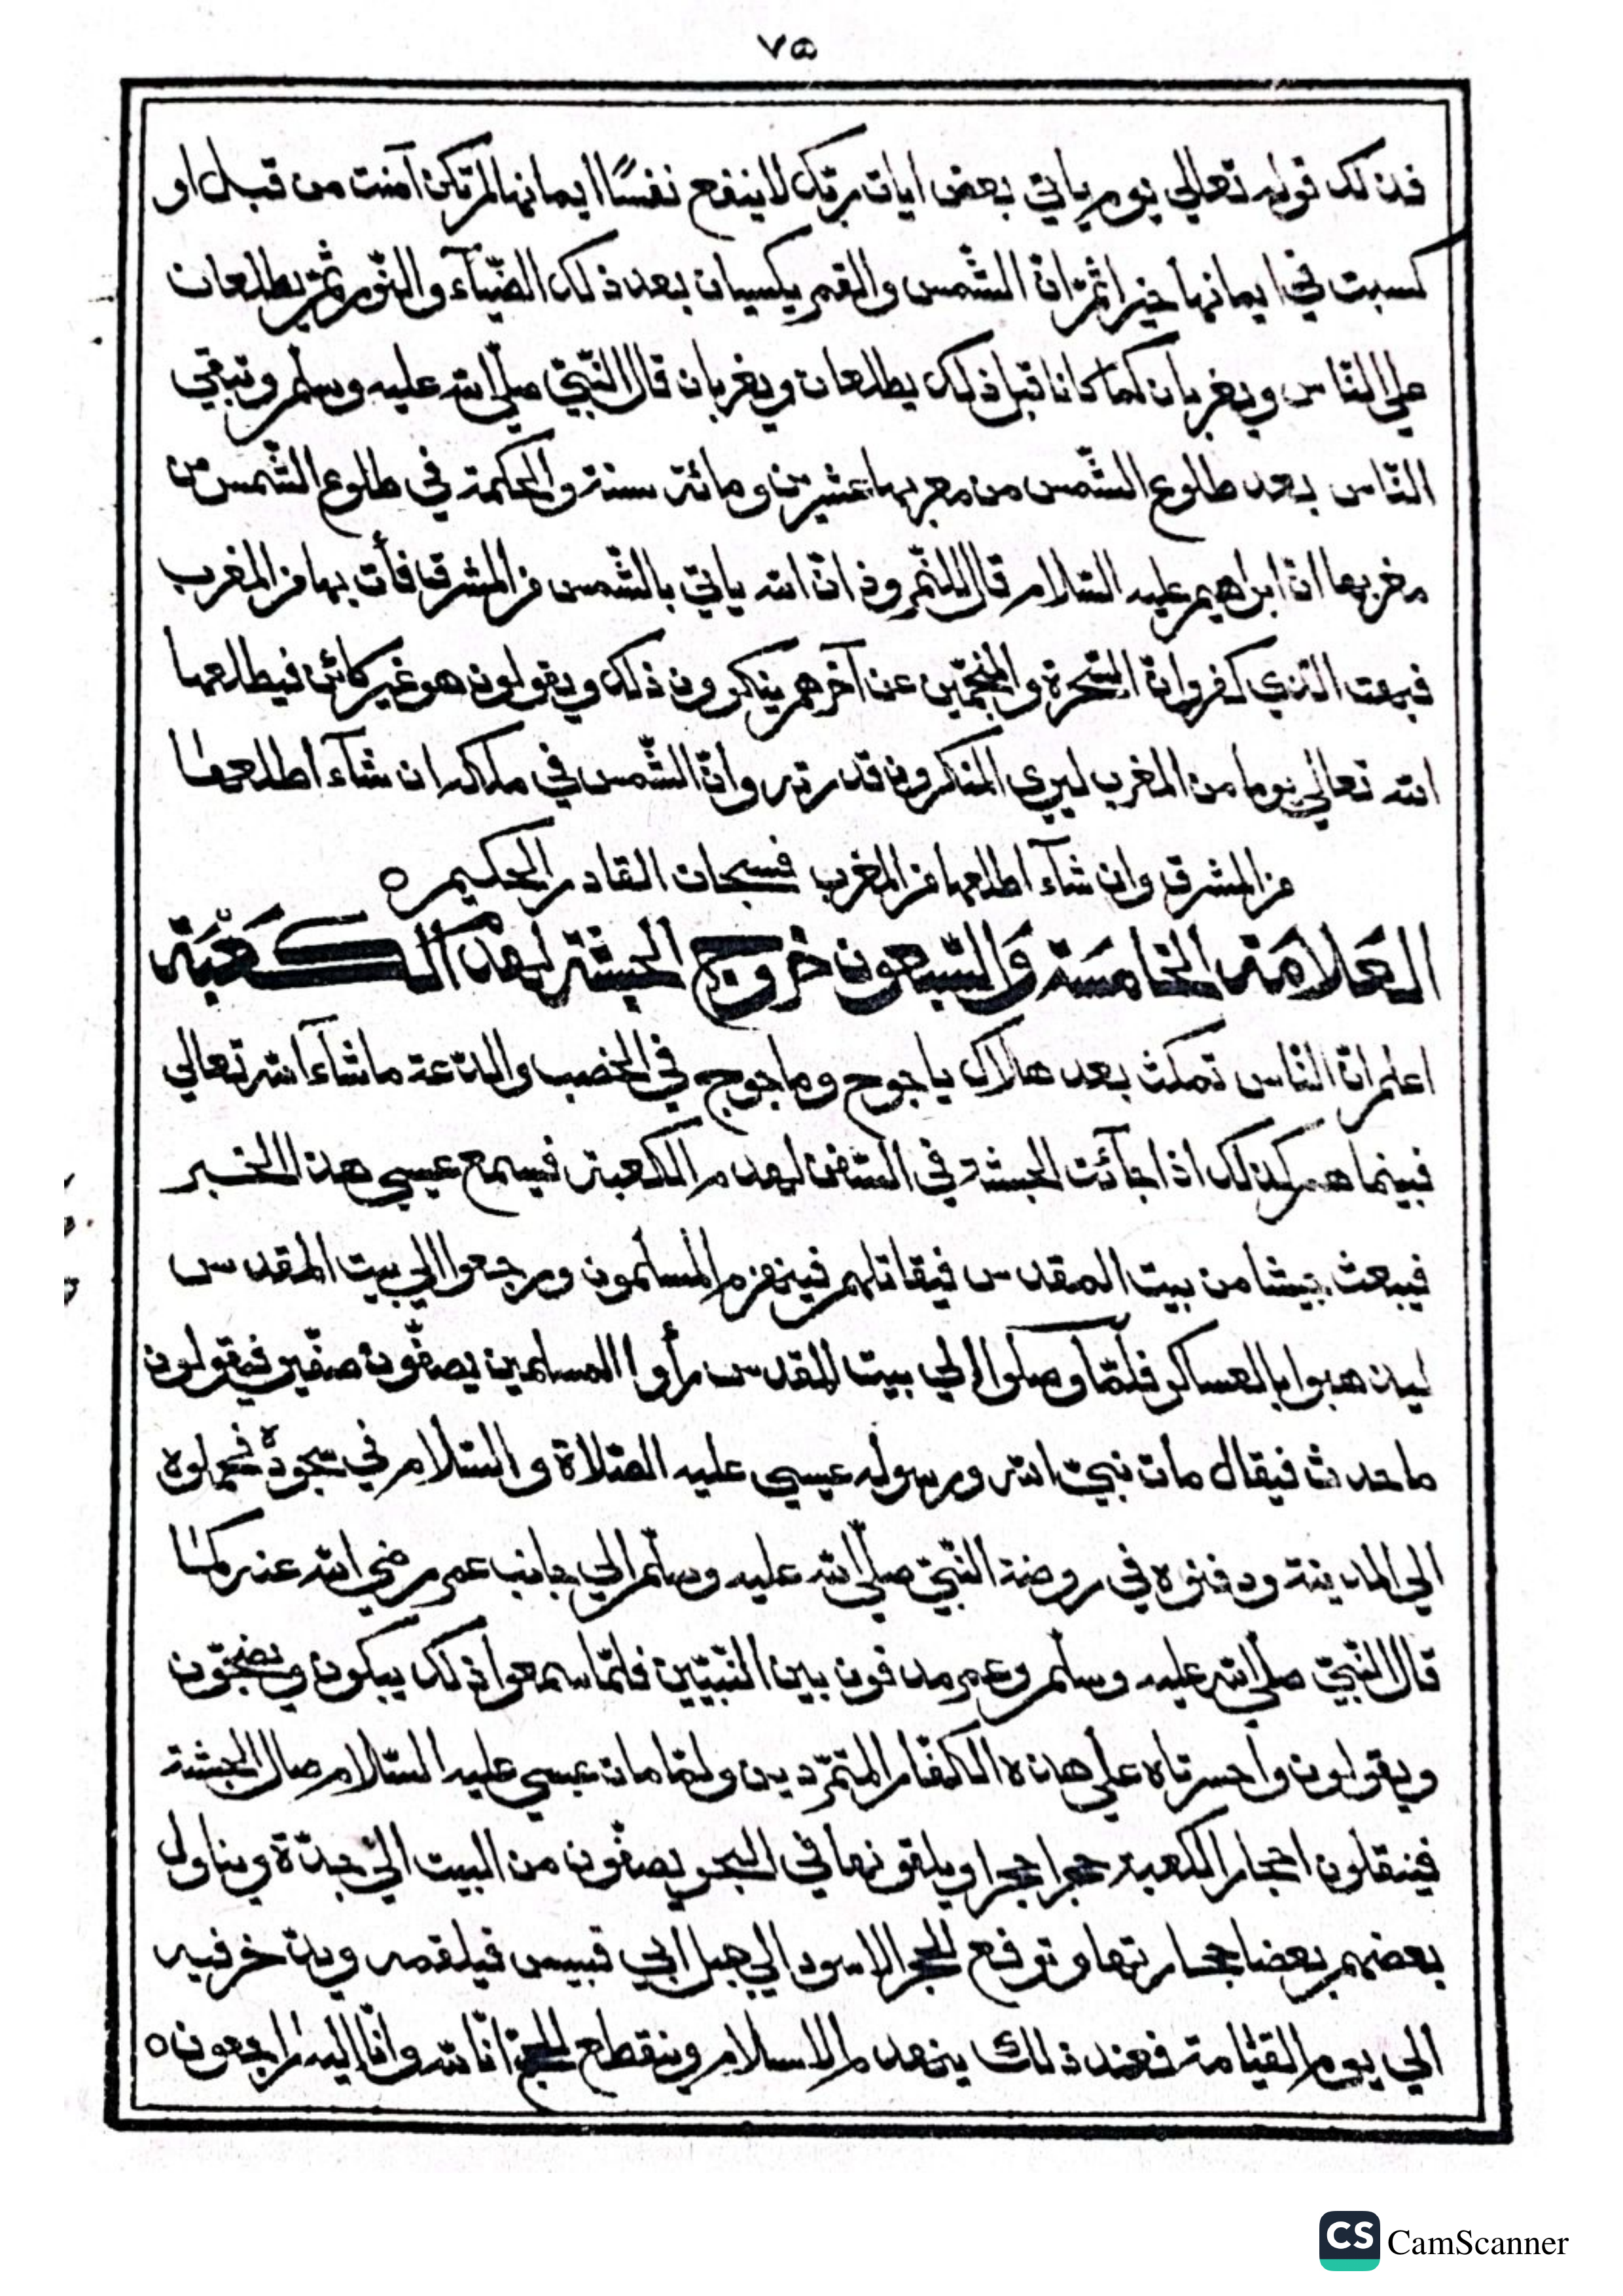 ٧٥
فذلك قوله تعالي يوم ياتي بعض ايات ربك لاينفع نفسًا ايمانها لم تكن آمنت من قبل او
كسبت في ايمانها خيرا ثمّ انّ الشّمس والقمر يكسيان بعد ذلك الضّيآء والنّور ثمّ يطلعان
علي النّاس ويغربان كما كانا قبل ذلك يطلعان ويغربان قال النّبيّ صلّي الله عليه وسلّم وتبقي
النّاس بعد طلوع الشّمس من مغربها عشرين ومائة سنة والحكمة في طلوع الشّمس من
مغربها انّ ابراهيم عليه السّلام قال للنّمروذ انّ الله ياتيّ بالشّمس من المشرق فأت بها من المغرب
فبهت الّذي كفر وانّ السّحرة والمنجّمين عن آخرهم ينكرون ذلك ويقولون هو غير كائن فيطلعها
الله تعالي يوما من المغرب ليري المنكرون قدرته وانّ الشّمس في ملكه ان شآء اطلعها
من المشرق وان شآء اطلعها من المغرب فسبحان القادر الحكيم ٥
العَلامَة الخامسَة وَالسّبعون خروج الحبشة لهدم الكَعبَة
اعلم انّ النّاس تمكث بعد هلاك ياجوج وماجوج في الخصب والدّعة ماشآء الله تعالي
فبينما هم كذلك اذا جآئت الحبشة في السّفن لهدم الكعبة فيسمع عيسي هذا الخبر
فيبعث جيشا من بيت المقدس فيقاتلهم فينهزم المسلمون ورجعوا الي بيت المقدس
ليذهبوا بالعساكر فلمّا وصلوا الي بيت المقدس رأوا المسلمين يصفّون صفّين فيقولون
ماحدث فيقال مات نبيّ الله ورسوله عيسي عليه الصّلاة والسّلام في سجوده فحملوه
الي المدينة ودفنوه في روضة النّبيّ صلّي الله عليه وسلّم الي جانب عمر رضي الله عنه كما
قال النّبيّ صلّي الله عليه وسلّم وعمر مدفون بين النّبيّين فلمّا سمعوا ذلك يبكون ويضجّون
ويقولون وأحسرتاه علي هذه الكفّار المتمرّدين ولمّا مات عيسي عليه السّلام صال الحبشة
فينقلون احجار الكعبة حجرا حجرا ويلقونها في البحر يصفّون من البيت الي جدّة ويناول
بعضهم بعضا حجارتها وترفع الحجر الاسود الي جبل ابي قبيس فيلقمه ويدّخر فيه
الي يوم القيامة فعند ذلك ينهدم الاسلام وينقطع الحجّ انّا لله وانّا اليه راجعون ٥
CS CamScanner